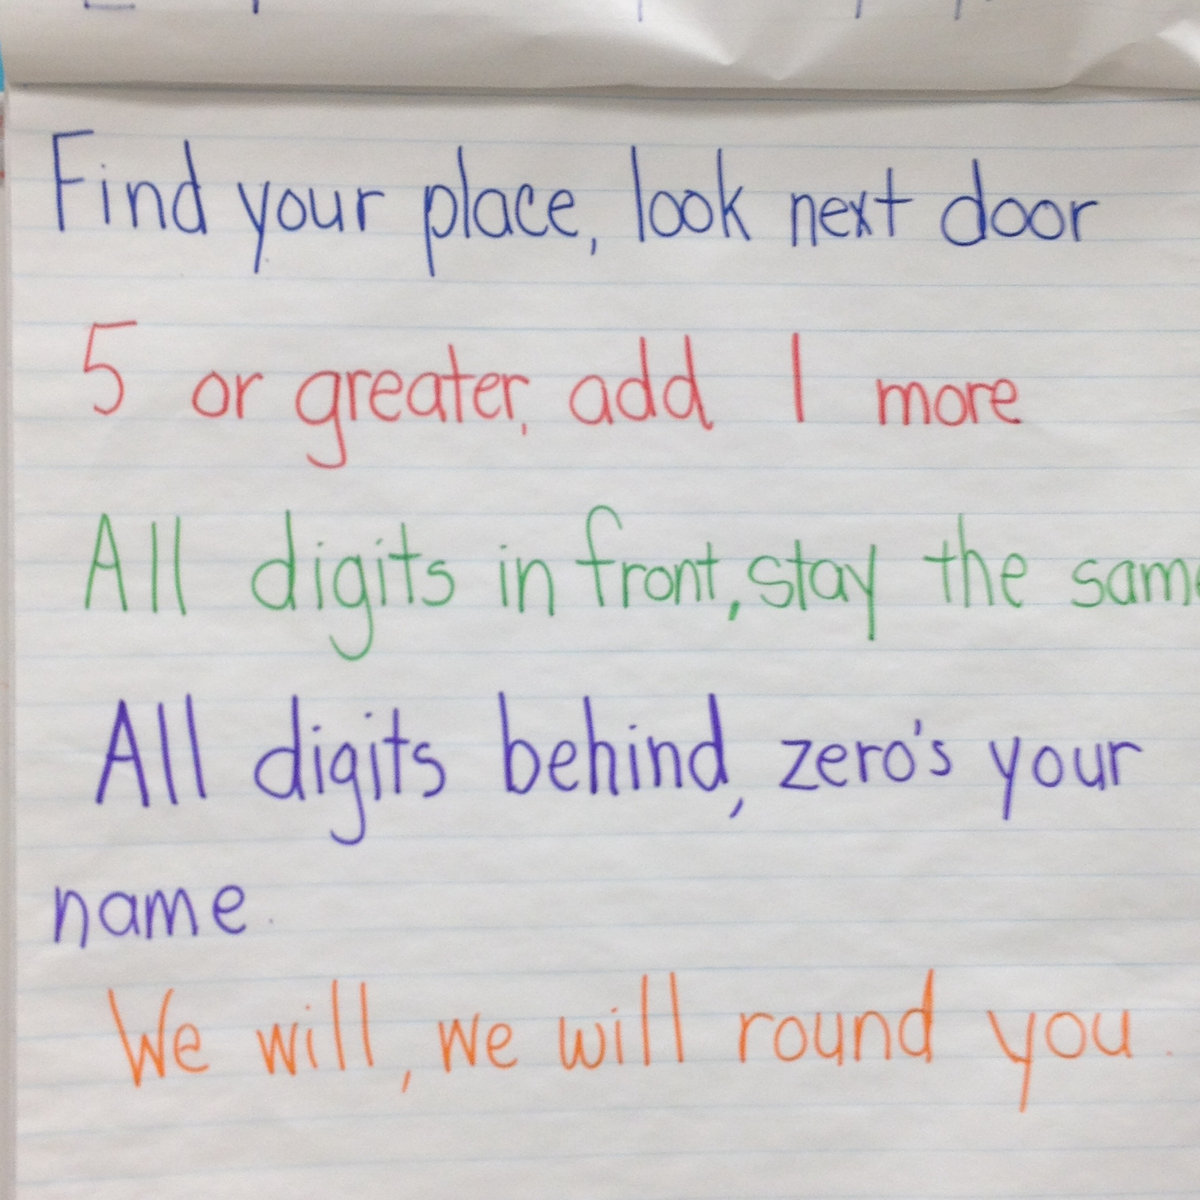 Find your place, look next door
5 or greater, add 1 more
All digits in front, stay the same
All digits behind, zero's your
name.
We will, we will round you.